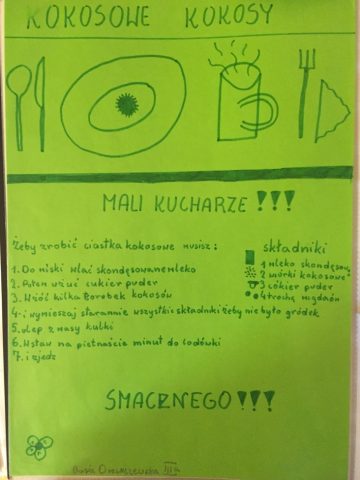 KOKOSOWE KOKOSY
MALI KUCHARZE !!!
Żeby zrobić ciastka kokosowe musisz:
1. Do miski wlać skondęsowane mleko
2. Potem wziuć cukier puder
3. Wziść kilka torebek kokosów
4. i wymieszaj starannie wszystkie składniki żeby nie było gródek
5. ulep z masy kulki
6. Wstaw na pietnaścia minut do lodówki
7. i zjedz
składniki
1 mleko skondęsow
2 wórki kokosowe
3 cókier puder
4 trochę migdałów
SMACZNEGO !!!
III